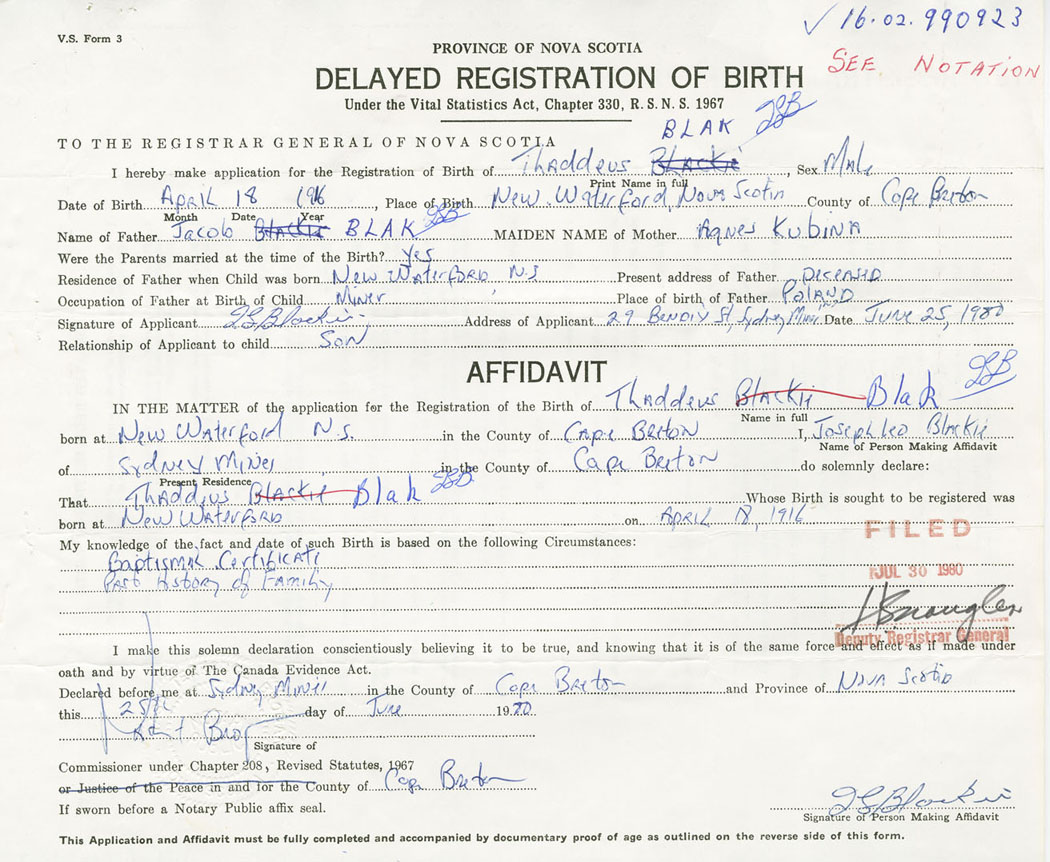 V.S. Form 3
✓ 16.02.990923
PROVINCE OF NOVA SCOTIA
SEE NOTATION
DELAYED REGISTRATION OF BIRTH
Under the Vital Statistics Act, Chapter 330, R. S. N. S. 1967
BLAK JLB
TO THE REGISTRAR GENERAL OF NOVA SCOTIA
I hereby make application for the Registration of Birth of Thaddeus Blackie, Sex Male
Print Name in full
Date of Birth April 18 1916, Place of Birth New Waterford, Nova Scotia County of Cape Breton
Month Date Year
Name of Father Jacob Blackie BLAK JLB MAIDEN NAME of Mother Agnes Kubina
Were the Parents married at the time of the Birth? Yes
Residence of Father when Child was born New Waterford, N.S Present address of Father Deceased
Occupation of Father at Birth of Child Miner Place of birth of Father Poland
Signature of Applicant J L Blackie Address of Applicant 29 Bendix St, Sydney Mines Date June 25, 1980
Relationship of Applicant to child Son
AFFIDAVIT
JLB
IN THE MATTER of the application for the Registration of the Birth of Thaddeus Blackie Blak
Name in full
born at New Waterford N.S. in the County of Cape Breton I, Joseph Leo Blackie
Name of Person Making Affidavit
of Sydney Mines, in the County of Cape Breton do solemnly declare:
Present Residence
That Thaddeus Blackie Blak JLB Whose Birth is sought to be registered was
born at New Waterford on April 18, 1916
FILED
My knowledge of the fact and date of such Birth is based on the following Circumstances:
Baptismal Certificate
JUL 30 1980
Past History of Family
Deputy Registrar General
I make this solemn declaration conscientiously believing it to be true, and knowing that it is of the same force and effect as if made under
oath and by virtue of The Canada Evidence Act.
Declared before me at Sydney Mines in the County of Cape Breton and Province of Nova Scotia
this 25th day of June 1980
Signature of
Commissioner under Chapter 208, Revised Statutes, 1967
or Justice of the Peace in and for the County of Cape Breton
If sworn before a Notary Public affix seal.
J L Blackie
Signature of Person Making Affidavit
This Application and Affidavit must be fully completed and accompanied by documentary proof of age as outlined on the reverse side of this form.